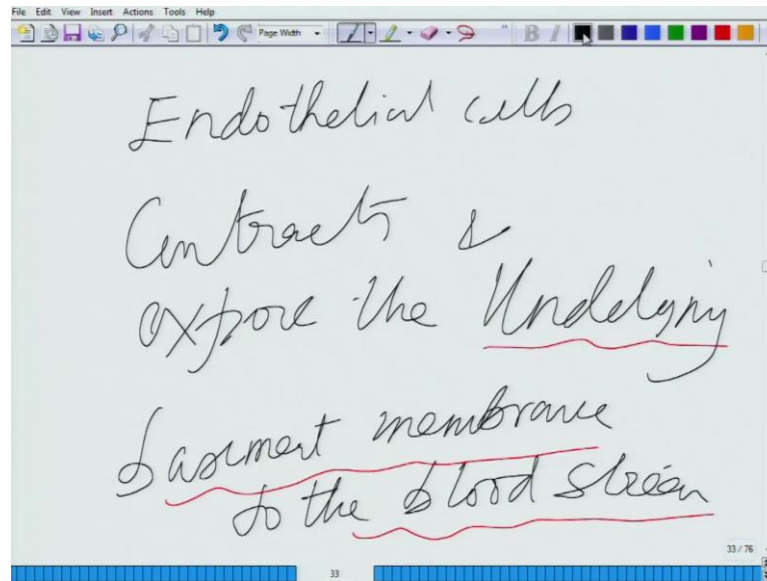 File Edit View Insert Actions Tools Help
Page Width
B I
Endothelial cells
Contracts &
expose the Underlying
basement membrane
to the blood stream
33 / 76
33